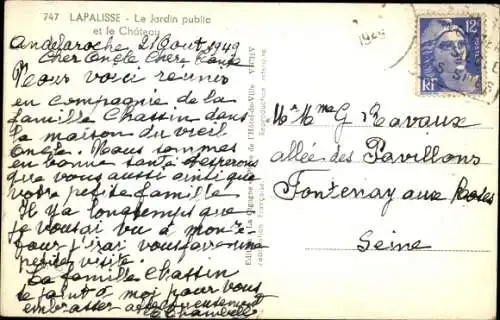 747 LAPALISSE - Le Jardin public
et le Château
Andelaroche 21 Aout 1949
Cher Oncle Chere Tante
Nous voici reunis
en compagnie de la
famille Chassin dans
la maison du vieil
Oncle. Nous sommes
en bonne santé desperons
que vous aussi ainsi que
votre petite famille
Il y a longtemps que
je vous ai vu à mon
pour j'irai vous faire une
petite visite.
La famille Chassin
se joint à moi pour vous
embrasser affectueusement
La Cigogne
de l'Hôtel-de-Ville - VICHY
Reproduction interdite
1949
12F
RF
Mr Mme G Ravaux
allée des Pavillons
Fontenay aux Roses
Seine